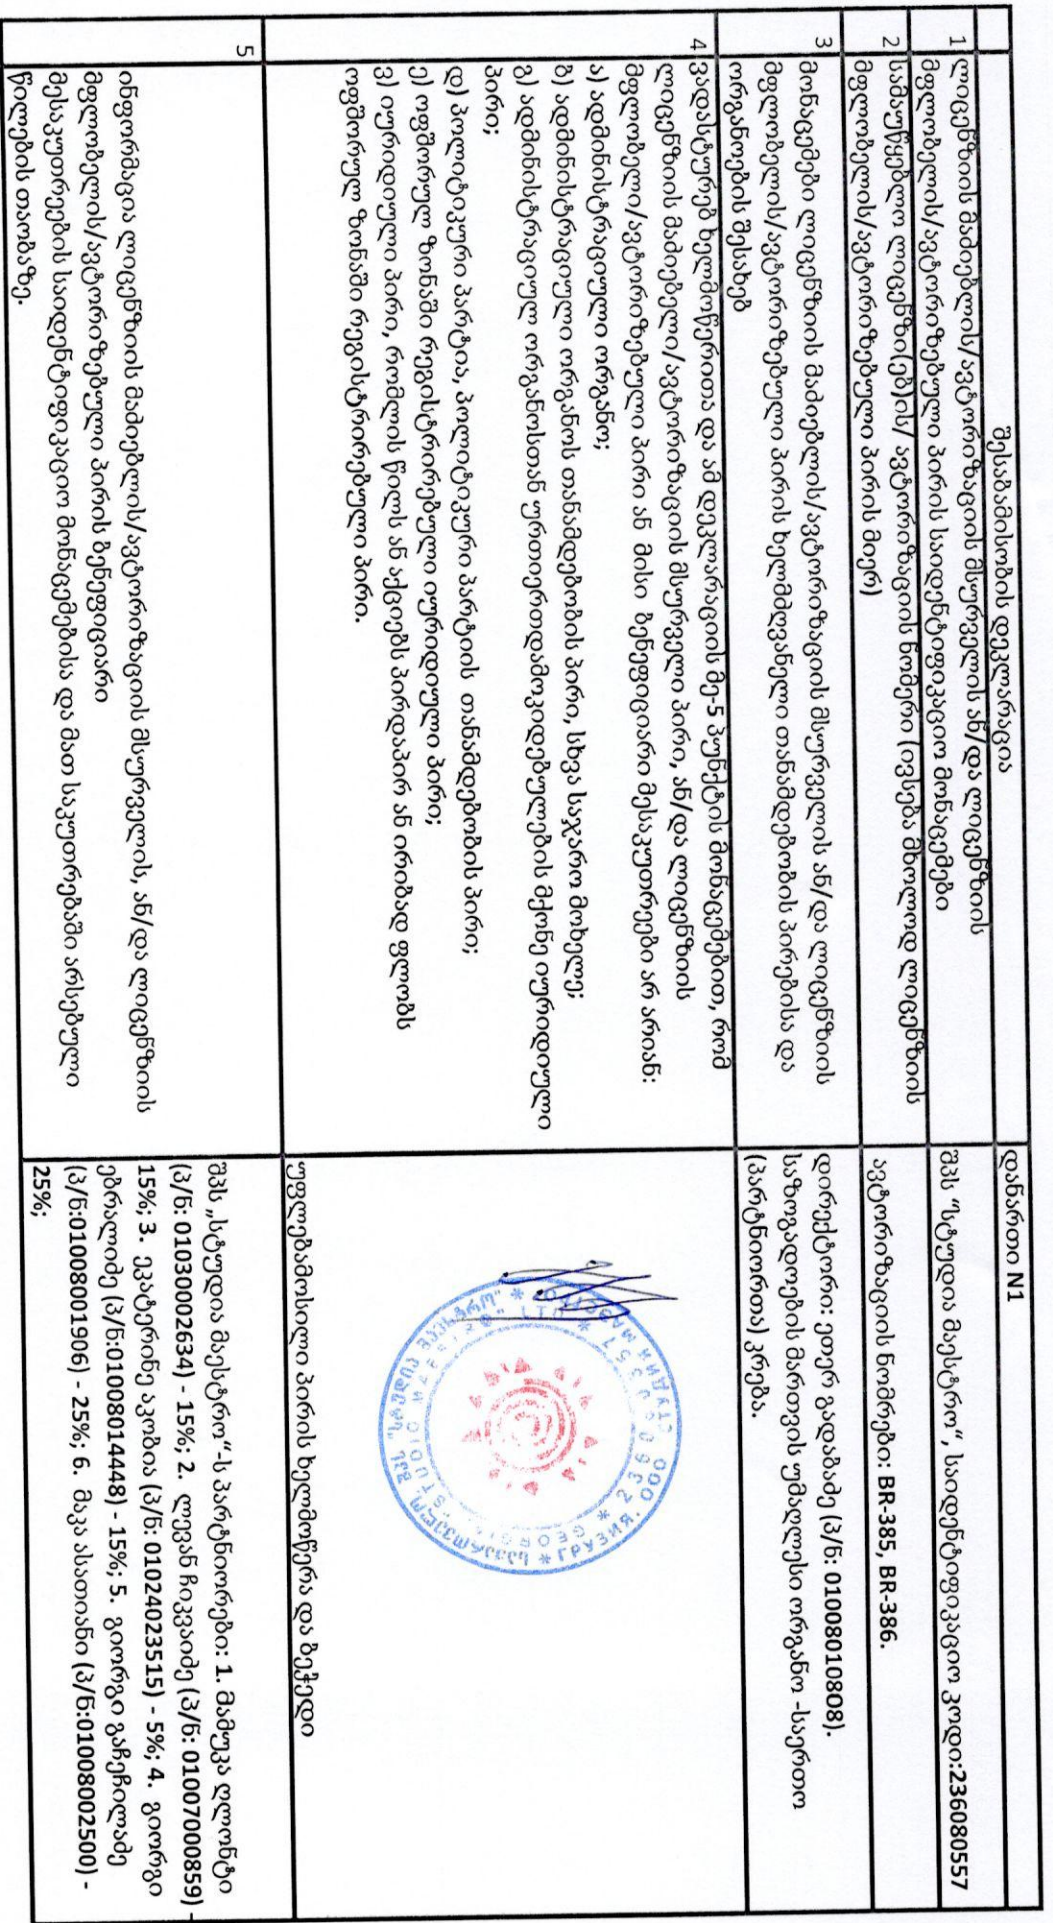 შესაბამისობის დეკლარაცია
დანართი N1
1
ლიცენზიის მაძიებლის/ავტორიზაციის მსურველის ან/და ლიცენზიის
მფლობელის/ავტორიზებული პირის საიდენტიფიკაციო მონაცემები
შპს "სტუდია მაესტრო", საიდენტიფიკაციო კოდი:236080557
2
სამაუწყებლო ლიცენზი(ებ)ის/ ავტორიზაციის ნომერი (ივსება მხოლოდ ლიცენზიის
მფლობელის/ავტორიზებული პირის მიერ)
ავტორიზაციის ნომრები: BR-385, BR-386.
3
მონაცემები ლიცენზიის მაძიებლის/ავტორიზაციის მსურველის ან/და ლიცენზიის
მფლობელის/ავტორიზებული პირის ხელმძღვანელი თანამდებობის პირებისა და
ორგანოების შესახებ
დირექტორი: ეთერ გადაბაძე (პ/ნ: 01008010808).
საზოგადოების მართვის უმაღლესი ორგანო -საერთო
(პარტნიორთა) კრება.
4
ვადასტურებ ხელმოწერითა და ამ დეკლარაციის მე-5 პუნქტის მონაცემებით, რომ
ლიცენზიის მაძიებელი/ავტორიზაციის მსურველი პირი, ან/და ლიცენზიის
მფლობელი/ავტორიზებული პირი ან მისი ბენეფიციარი მესაკუთრეები არ არიან:
ა) ადმინისტრაციული ორგანო;
ბ) ადმინისტრაციული ორგანოს თანამდებობის პირი, სხვა საჯარო მოხელე;
გ) ადმინისტრაციულ ორგანოსთან ურთიერთდამოკიდებულების მქონე იურიდიული
პირი;
დ) პოლიტიკური პარტია, პოლიტიკური პარტიის თანამდებობის პირი;
ე) ოფშორულ ზონაში რეგისტრირებული იურიდიული პირი;
ვ) იურიდიული პირი, რომლის წილს ან აქციებს პირდაპირ ან ირიბად ფლობს
ოფშორულ ზონაში რეგისტრირებული პირი.
უფლებამოსილი პირის ხელმოწერა და ბეჭედი
5
ინფორმაცია ლიცენზიის მაძიებლის/ავტორიზაციის მსურველის, ან/და ლიცენზიის
მფლობელის/ავტორიზებული პირის ბენეფიციარი
მესაკუთრეების საიდენტიფიკაციო მონაცემებისა და მათ საკუთრებაში არსებული
წილების თაობაზე.
შპს „სტუდია მაესტრო“-ს პარტნიორები: 1. მამუკა ღლონტი
(პ/ნ: 01030002634) - 15%; 2. ლევან ჩიკვაიძე (პ/ნ: 01007000859) -
15%; 3. ეკატერინე აკობია (პ/ნ: 01024023515) - 5%; 4. გიორგი
ებრალიძე (პ/ნ:01008014448) - 15%; 5. გიორგი გაჩეჩილაძე
(პ/ნ:01008001906) - 25%; 6. მაკა ასათიანი (პ/ნ:01008002500) -
25%;